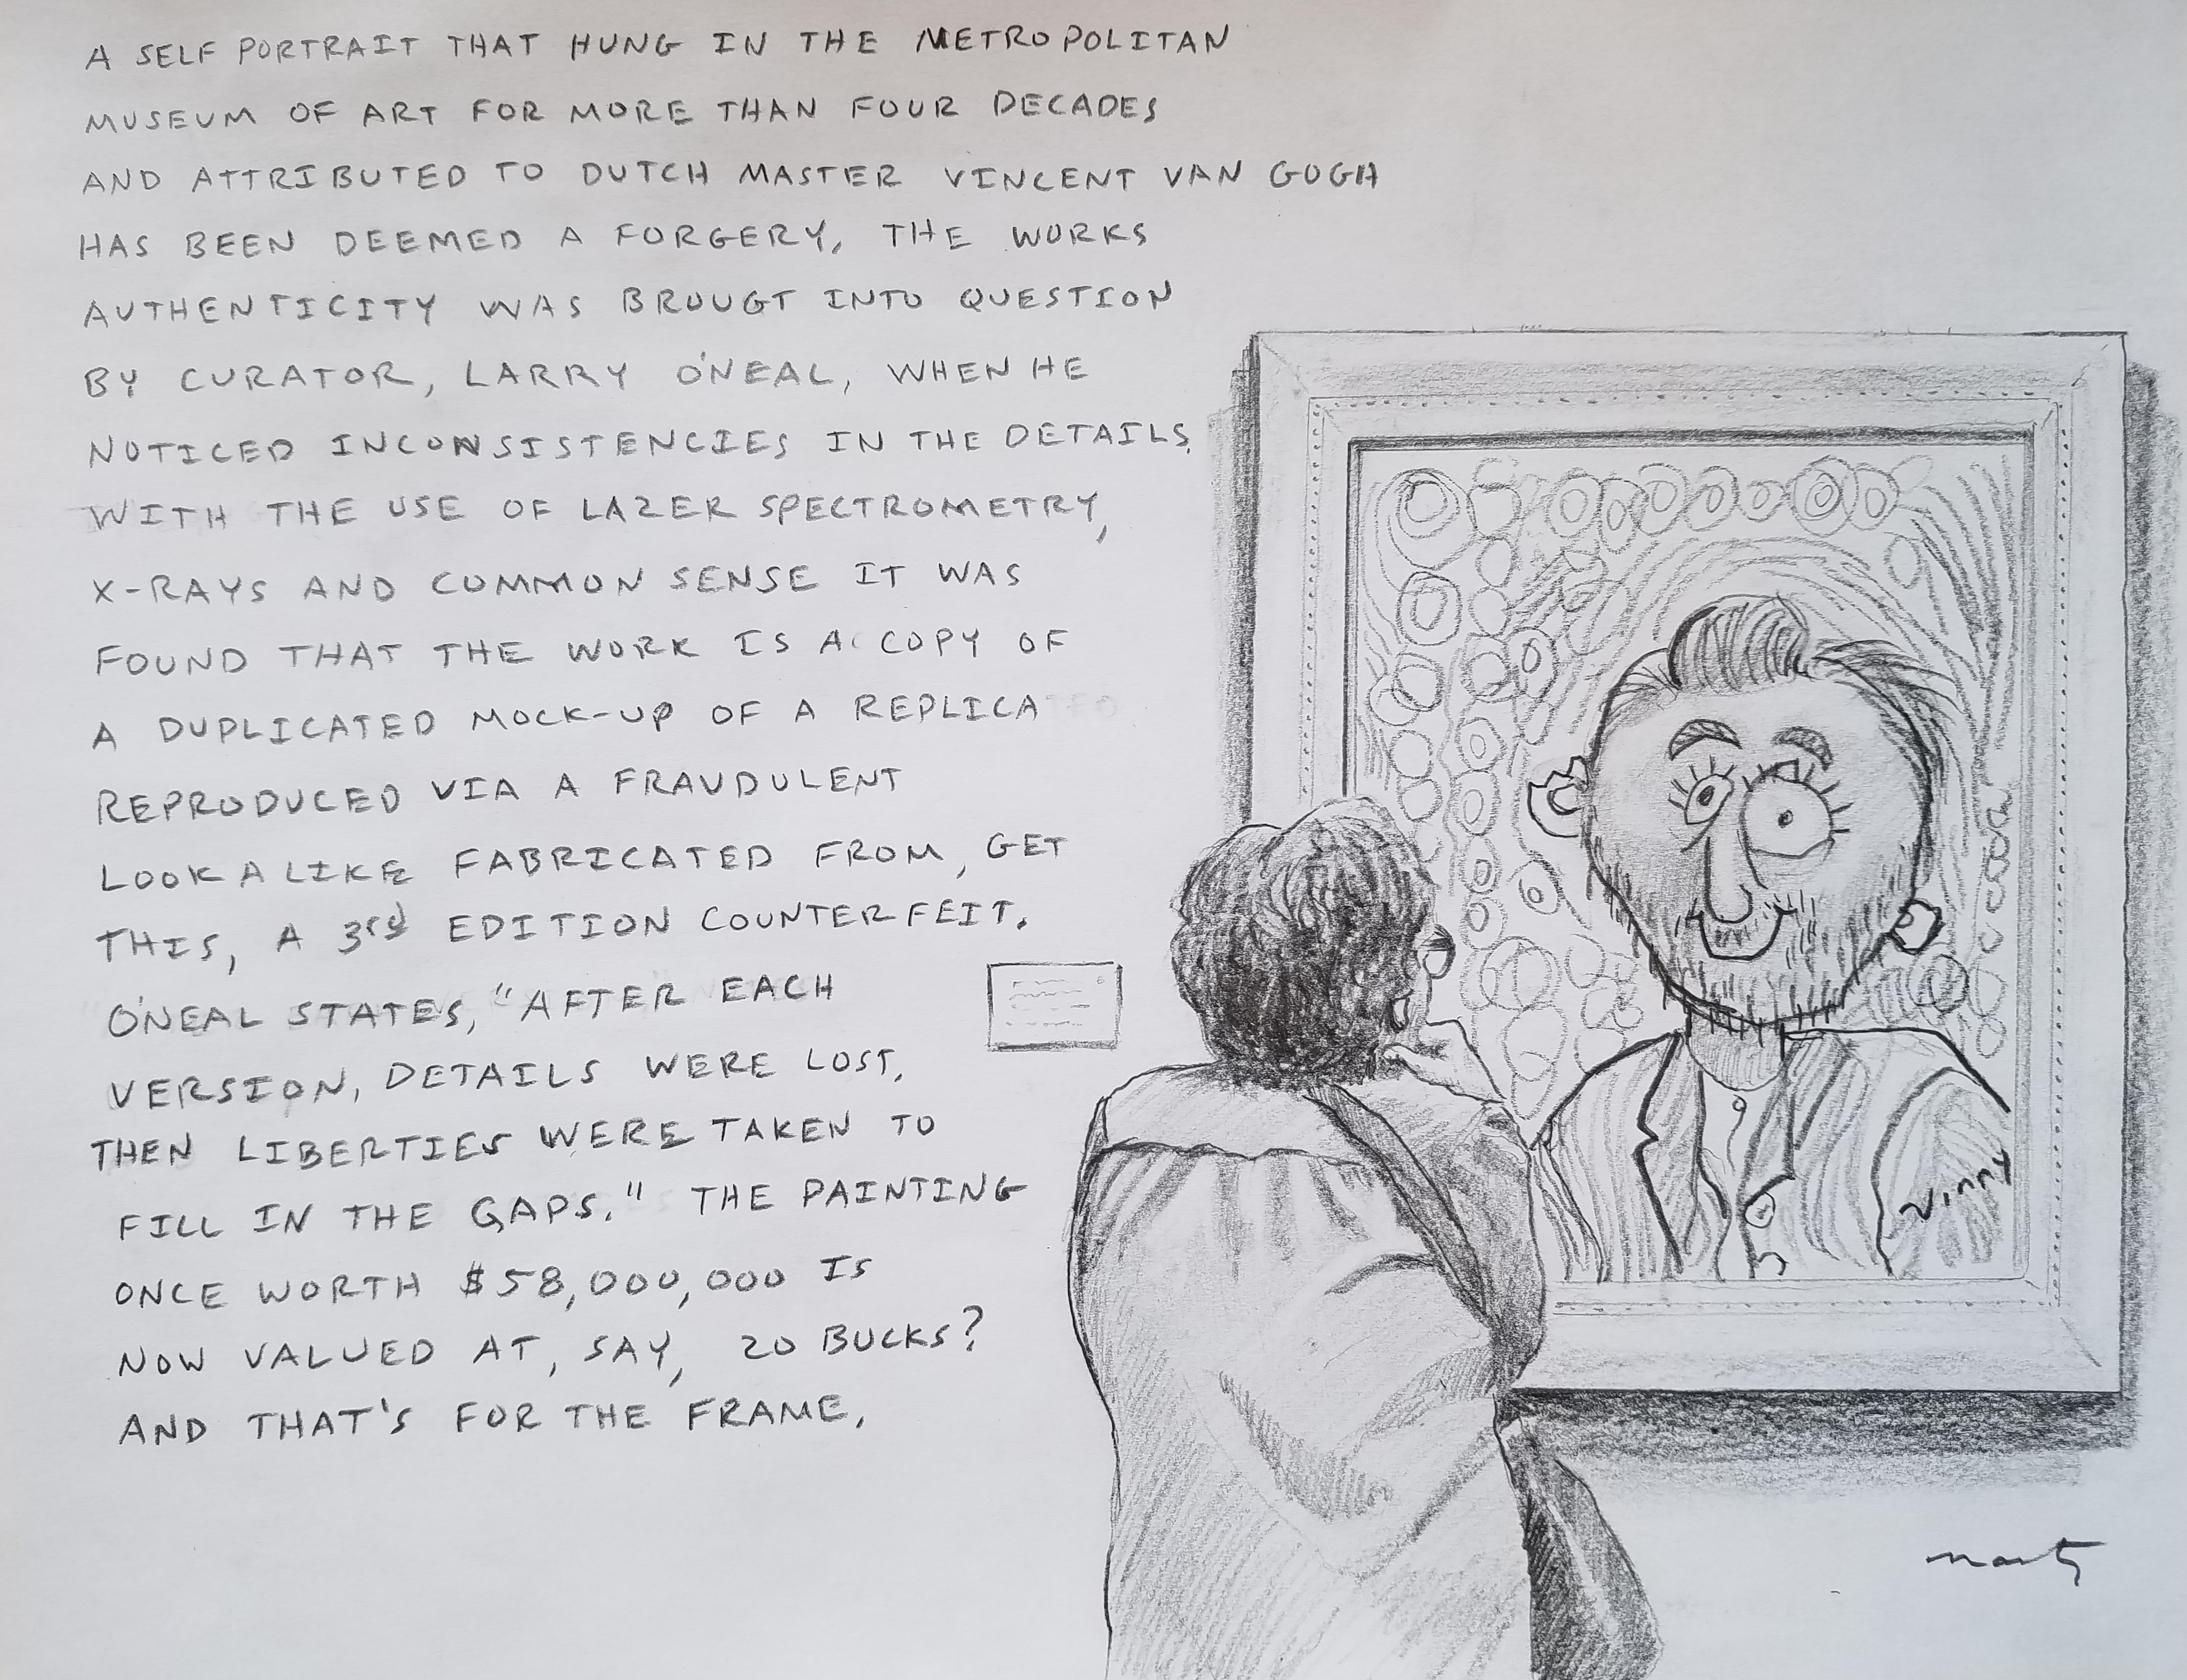 A SELF PORTRAIT THAT HUNG IN THE METROPOLITAN
MUSEUM OF ART FOR MORE THAN FOUR DECADES
AND ATTRIBUTED TO DUTCH MASTER VINCENT VAN GOGH
HAS BEEN DEEMED A FORGERY, THE WORKS
AUTHENTICITY WAS BROUGT INTO QUESTION
BY CURATOR, LARRY O'NEAL, WHEN HE
NOTICED INCONSISTENCIES IN THE DETAILS.
WITH THE USE OF LAZER SPECTROMETRY,
X-RAYS AND COMMON SENSE IT WAS
FOUND THAT THE WORK IS A COPY OF
A DUPLICATED MOCK-UP OF A REPLICA
REPRODUCED VIA A FRAUDULENT
LOOK A LIKE FABRICATED FROM, GET
THIS, A 3rd EDITION COUNTERFEIT.
O'NEAL STATES, "AFTER EACH
VERSION, DETAILS WERE LOST,
THEN LIBERTIES WERE TAKEN TO
FILL IN THE GAPS." THE PAINTING
ONCE WORTH $58,000,000 IS
NOW VALUED AT, SAY, 20 BUCKS?
AND THAT'S FOR THE FRAME.
Vinny
Marty